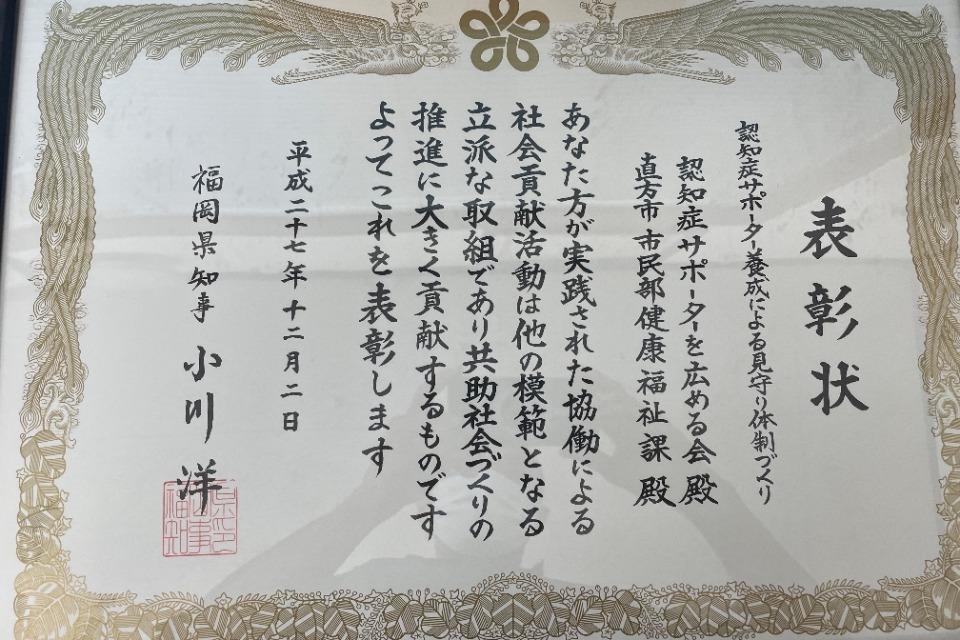 表彰状
認知症サポーター養成による見守り体制づくり
認知症サポーターを広める会殿
直方市 市民部健康福祉課 殿
あなた方が実践された協働による
社会貢献活動は他の模範となる
立派な取組であり共助社会づくりの
推進に大きく貢献するものです
よってこれを表彰します
平成二十七年十二月二日
福岡県知事 小川 洋